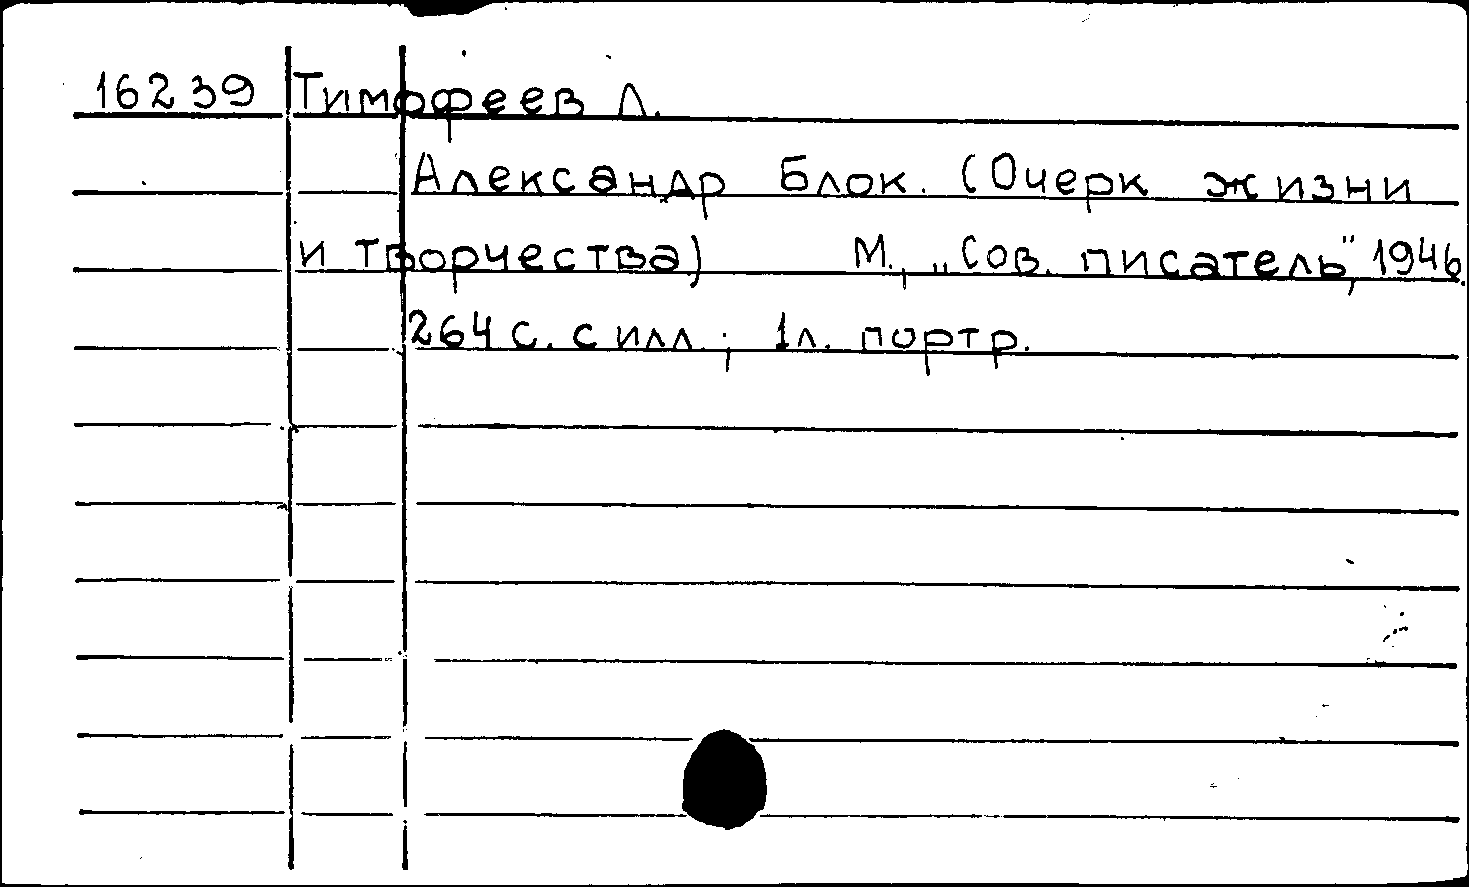 16239 Тимофеев Л.
Александр Блок. (Очерк жизни
и творчества) М., „Сов. писатель", 1946.
264 с. с илл.; 1л. портр.